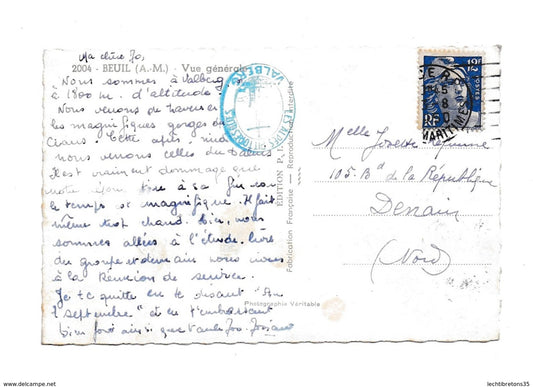 Ma chère Jo,
2004 - BEUIL (A.-M.) - Vue générale
Nous sommes à Valberg
à 1800 m. d'altitude.
Nous venons de traverser
les magnifiques gorges du
Cians. Cette après. midi
nous verrons celles du Daluis
Il est vraiment dommage que
notre séjour à sa fin car
le temps est magnifique. Il fait
même trop chaud. Hier, nous
sommes allées à l'étude. hors
du groupe et demain nous irons
à la Réunion de service.
Je te quitte en te disant "Au
1 septembre" et en t'embrassant
bien fort ainsi que Josiane
VALBERG
EDITION P.
Fabrication Française — Reproduction Interdite
Photographie Véritable
12F
POSTES
RF
MARITIMES
Melle Josette
105. Bd de la République
Denain
(Nord)
www.delcampe.net
lechtibretons35